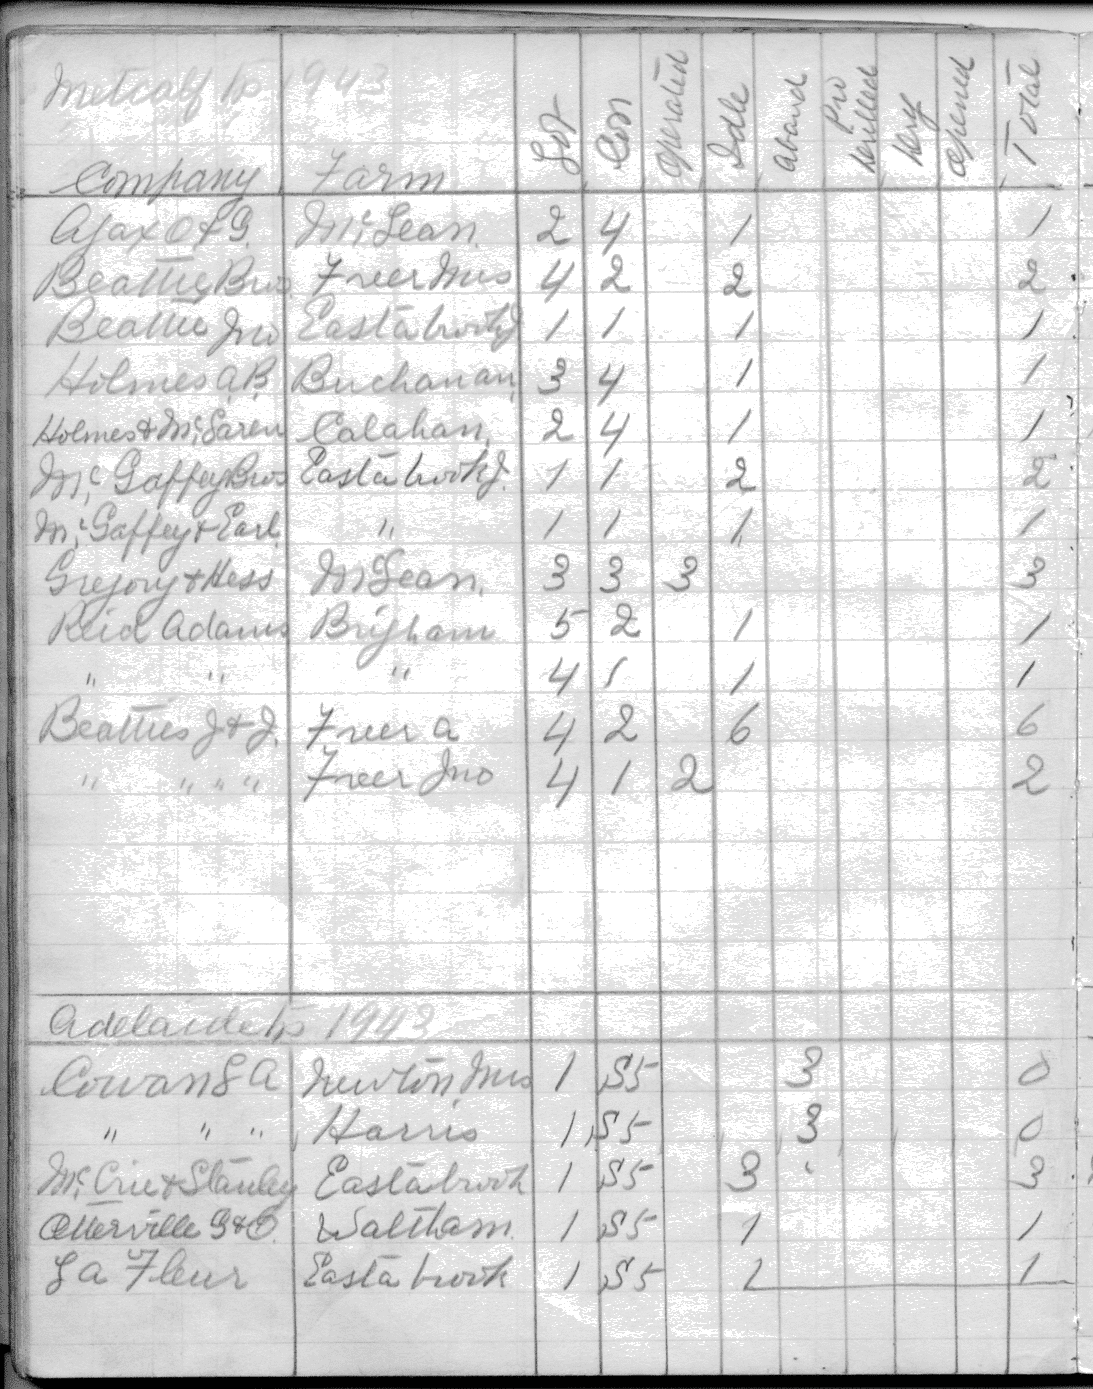 Metcalf tp 1943
Company Farm Lot Con Operated Idle Aband Pro Drilled Being Opened Total
Ajax O & G. McLean. 2 4 1 1
Beattie Bros Freer Mrs 4 2 2 2
Beattie Jno Eastabrook J 1 1 1 1
Holmes A.B. Buchanan 3 4 1 1
Holmes & McLaren Calahan. 2 4 1 1
Mc Gaffey Bros Eastabrook J. 1 1 2 2
Mc Gaffey & Earl. " 1 1 1 1
Gregory & Hess McLean. 3 3 3 3
Reid Adams Brigham 5 2 1 1
" " " 4 1 1 1
Beatties J & J. Freer A 4 2 6 6
" " " " Freer Jno 4 1 2 2
Adelaide tp 1943
Cowan L A Newton, Mrs 1 S5 3 0
" " " Harris 1 S5 3 0
Mc Crie & Stanley Eastabrook 1 S5 3 3
Otterville G & O. Waltham. 1 S5 1 1
La Fleur Eastabrook 1 S5 1 1